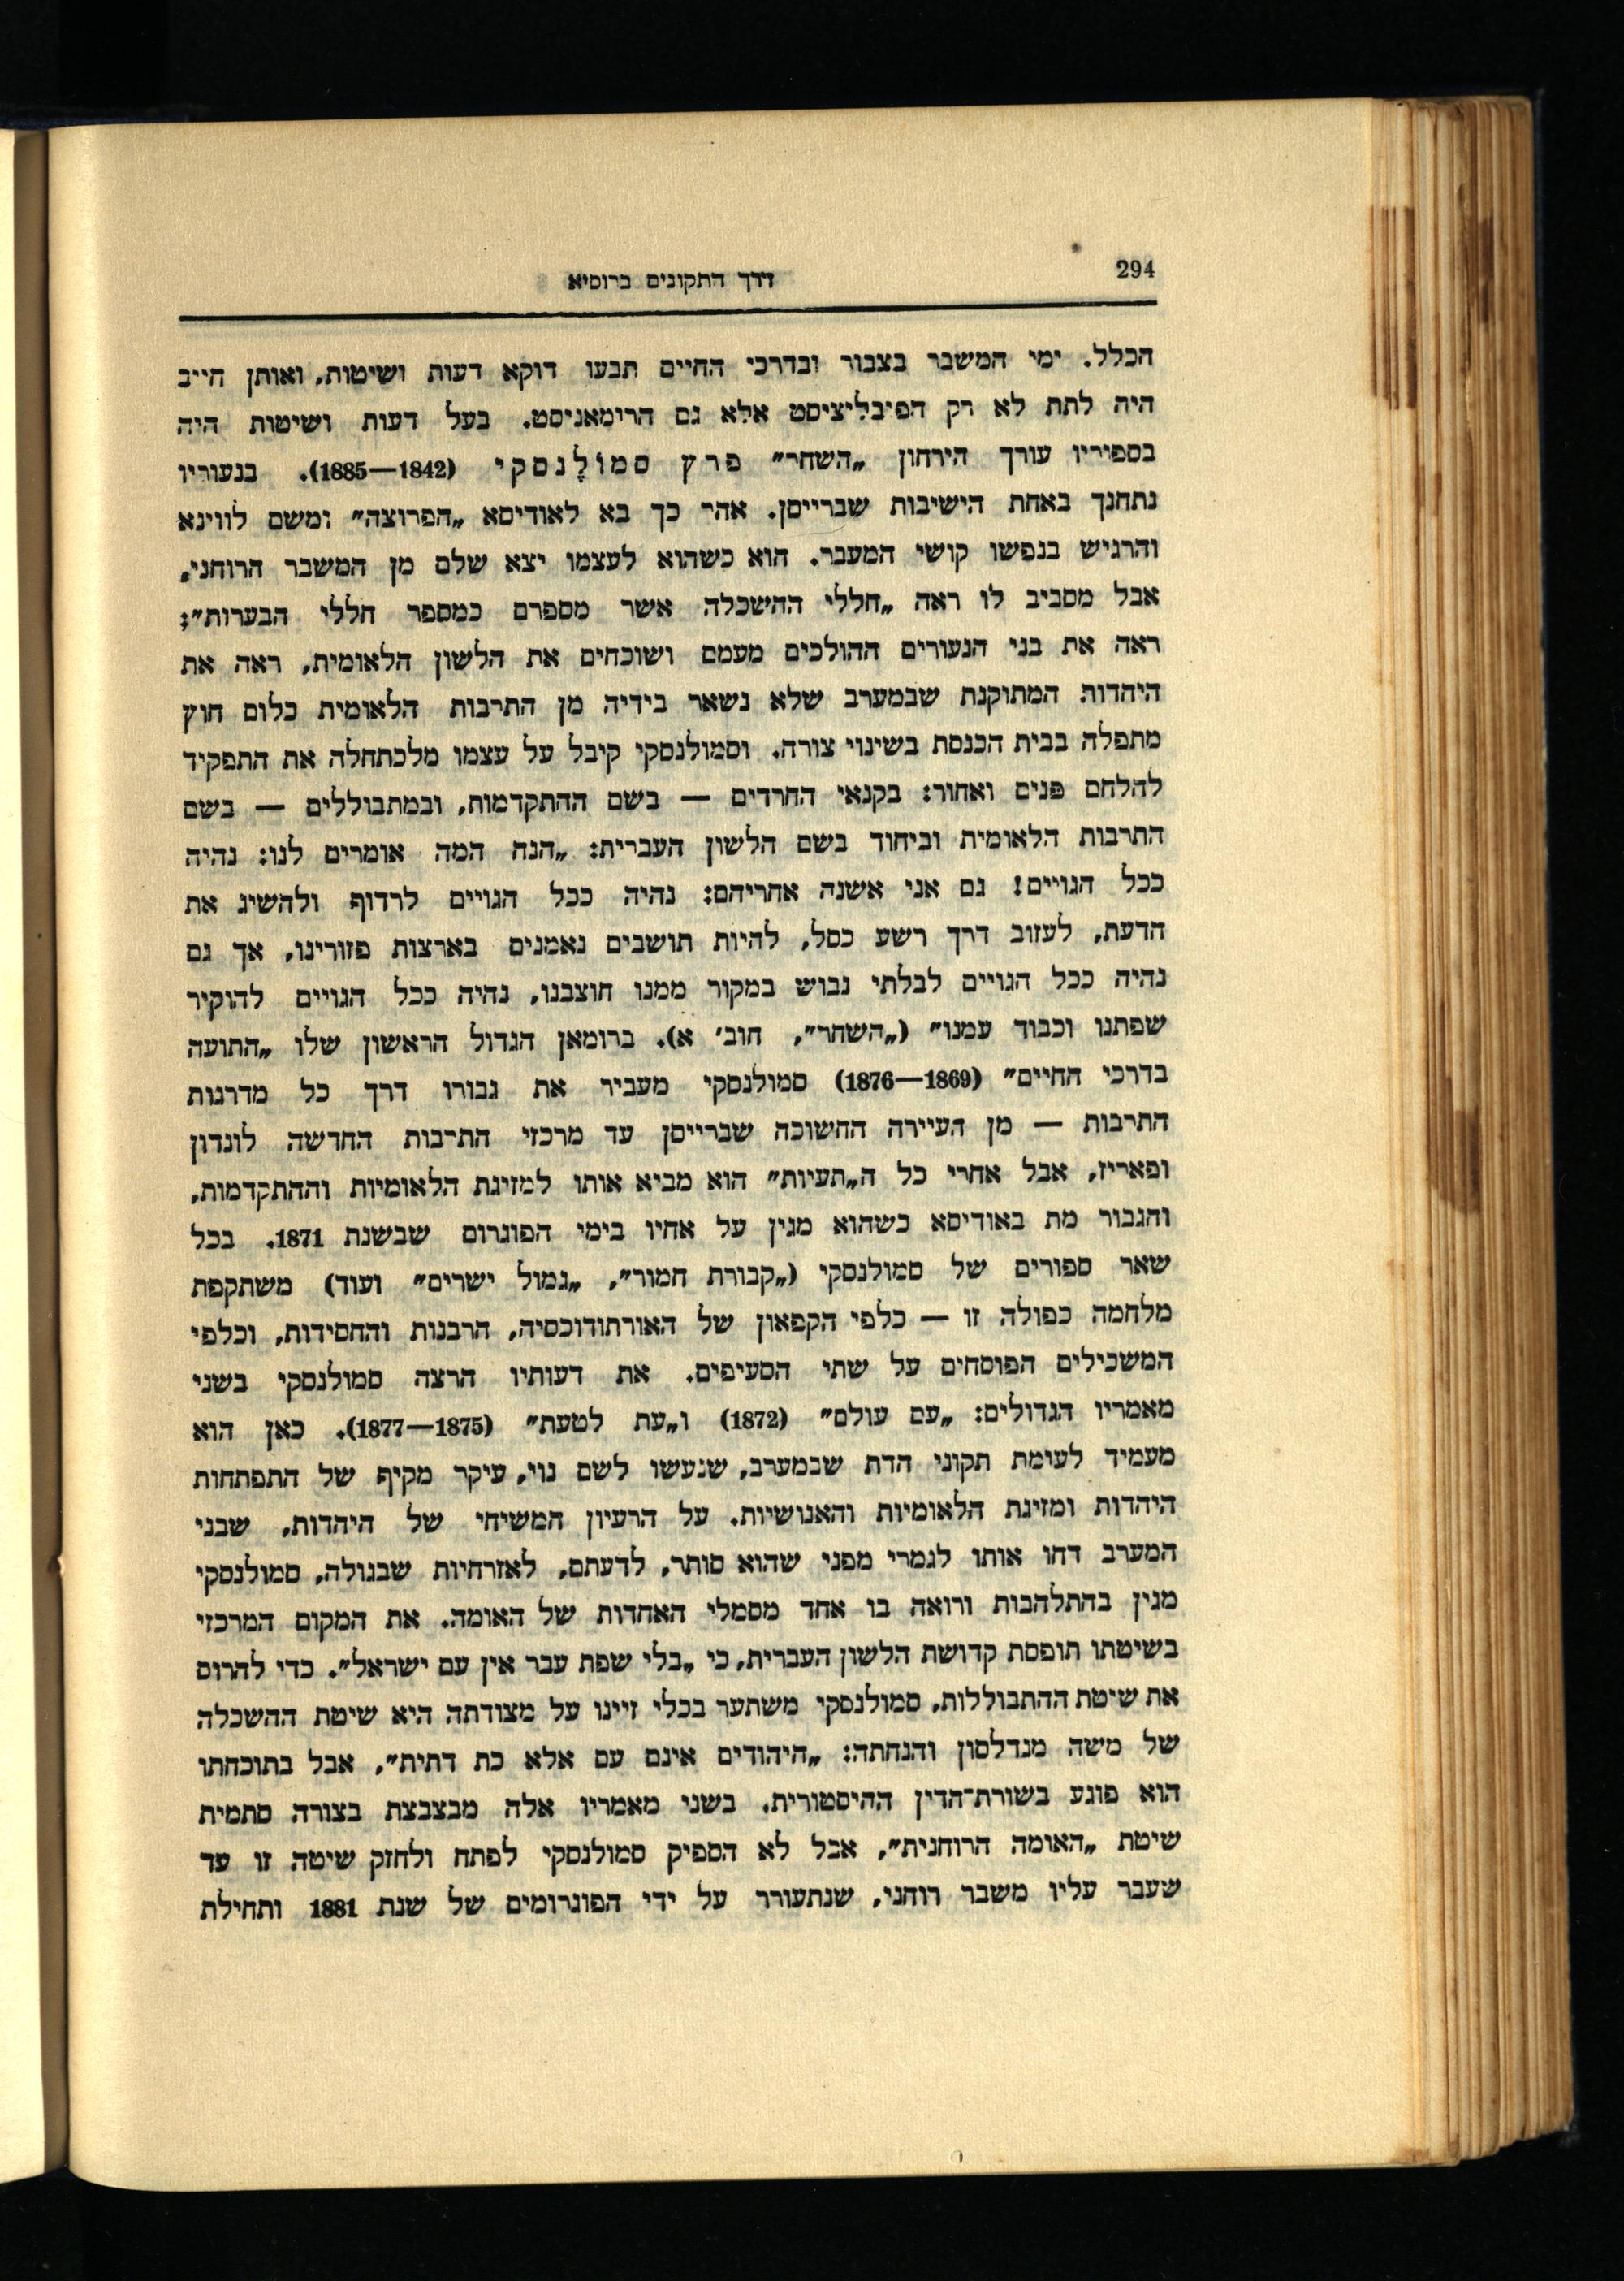 294
דרך התקונים ברוסיא
הכלל. ימי המשבר בצבור ובדרכי החיים תבעו דוקא דעות ושיטות, ואותן חייב
היה לתת לא רק הפובליציסט אלא גם הרומאניסט. בעל דעות ושיטות היה
בספיריו עורך הירחון „השחר״ פרץ סמולֶנסקי (1842—1885). בנעוריו
נתחנך באחת הישיבות שברייסן. אחר כך בא לאודיסא „הפרוצה״ ומשם לווינא
והרגיש בנפשו קושי המעבר. הוא כשהוא לעצמו יצא שלם מן המשבר הרוחני,
אבל מסביב לו ראה „חללי ההשכלה אשר מספרם כמספר חללי הבערות״;
ראה את בני הנעורים ההולכים מעמם ושוכחים את הלשון הלאומית, ראה את
היהדות המתוקנת שבמערב שלא נשאר בידיה מן התרבות הלאומית כלום חוץ
מתפלה בבית הכנסת בשינוי צורה. וסמולנסקי קיבל על עצמו מלכתחלה את התפקיד
להלחם פנים ואחור: בקנאי החרדים — בשם ההתקדמות, ובמתבוללים — בשם
התרבות הלאומית וביחוד בשם הלשון העברית: „הנה המה אומרים לנו: נהיה
ככל הגויים! גם אני אשנה אחריהם: נהיה ככל הגויים לרדוף ולהשיג את
הדעת, לעזוב דרך רשע כסל, להיות תושבים נאמנים בארצות פזורינו, אך גם
נהיה ככל הגויים לבלתי נבוש במקור ממנו חוצבנו, נהיה ככל הגויים להוקיר
שפתנו וכבוד עמנו״ („השחר״, חוב׳ א). ברומאן הגדול הראשון שלו „התועה
בדרכי החיים״ (1869—1876) סמולנסקי מעביר את גבורו דרך כל מדרגות
התרבות — מן העיירה החשוכה שברייסן עד מרכזי התרבות החדשה לונדון
ופאריז, אבל אחרי כל ה„תעיות״ הוא מביא אותו למזיגת הלאומיות וההתקדמות,
והגבור מת באודיסא כשהוא מגין על אחיו בימי הפוגרום שבשנת 1871. בכל
שאר ספורים של סמולנסקי („קבורת חמור״, „גמול ישרים״ ועוד) משתקפת
מלחמה כפולה זו — כלפי הקפאון של האורתודוכסיה, הרבנות והחסידות, וכלפי
המשכילים הפוסחים על שתי הסעיפים. את דעותיו הרצה סמולנסקי בשני
מאמריו הגדולים: „עם עולם״ (1872) ו„עת לטעת״ (1875—1877). כאן הוא
מעמיד לעומת תקוני הדת שבמערב, שנעשו לשם נוי, עיקר מקיף של התפתחות
היהדות ומזיגת הלאומיות והאנושיות. על הרעיון המשיחי של היהדות, שבני
המערב דחו אותו לגמרי מפני שהוא סותר, לדעתם, לאזרחיות שבגולה, סמולנסקי
מגין בהתלהבות ורואה בו אחד מסמלי האחדות של האומה. את המקום המרכזי
בשיטתו תופסת קדושת הלשון העברית, כי „בלי שפת עבר אין עם ישראל״. כדי להרוס
את שיטת ההתבוללות, סמולנסקי משתער בכלי זיינו על מצודתה היא שיטת ההשכלה
של משה מנדלסון והנחתה: „היהודים אינם עם אלא כת דתית״, אבל בתוכחתו
הוא פוגע בשורת־הדין ההיסטורית. בשני מאמריו אלה מבצבצת בצורה סתמית
שיטת „האומה הרוחנית״, אבל לא הספיק סמולנסקי לפתח ולחזק שיטה זו עד
שעבר עליו משבר רוחני, שנתעורר על ידי הפוגרומים של שנת 1881 ותחילת